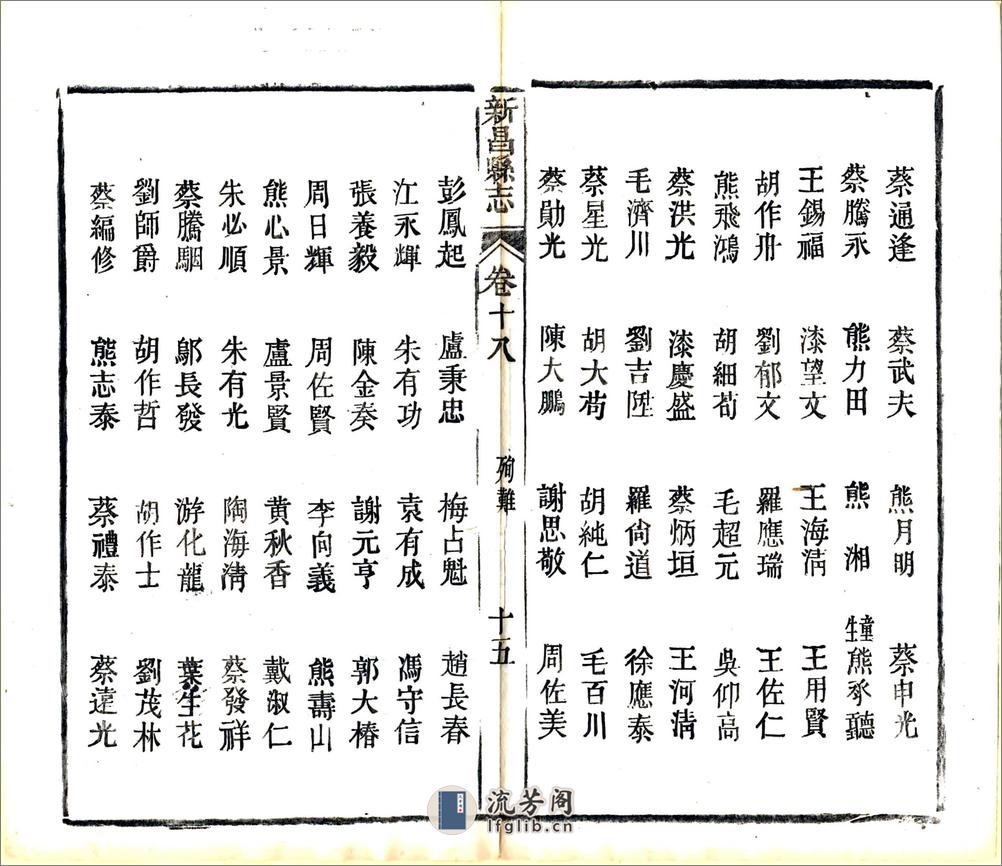 蔡通逢 蔡武夫 熊月明 蔡申光
蔡騰永 熊力田 熊湘 童生熊承聽
王錫福 漆望文 王海清 王用賢
胡作舟 劉郁文 羅應瑞 王佐仁
熊飛鴻 胡細苟 毛超元 吳仰高
蔡洪光 漆慶盛 蔡炳垣 王河清
毛濟川 劉吉陞 羅尙道 徐應泰
蔡星光 胡大苟 胡純仁 毛百川
蔡勛光 陳大鵬 謝思敬 周佐美
新昌縣志 卷十八 殉難 十五
彭鳳起 盧秉忠 梅占魁 趙長春
江永輝 朱有功 袁有成 馮守信
張養毅 陳金奏 謝元亨 郭大椿
周日輝 周佐賢 李向義 熊壽山
熊心景 盧景賢 黄秋香 戴淑仁
朱必順 朱有光 陶海清 蔡發祥
蔡騰駰 鄔長發 游化龍 葉生花
劉師爵 胡作哲 胡作士 劉茂林
蔡編修 熊志泰 蔡禮泰 蔡遠光
流芳阁
lfglib.cn